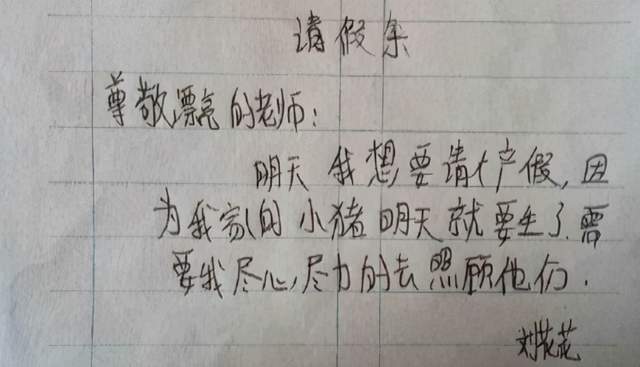 请假条
尊敬漂亮的老师：
明天我想要请个产假，因
为我家的小猪明天就要生了.需
要我尽心,尽力的去照顾他们.
刘花花